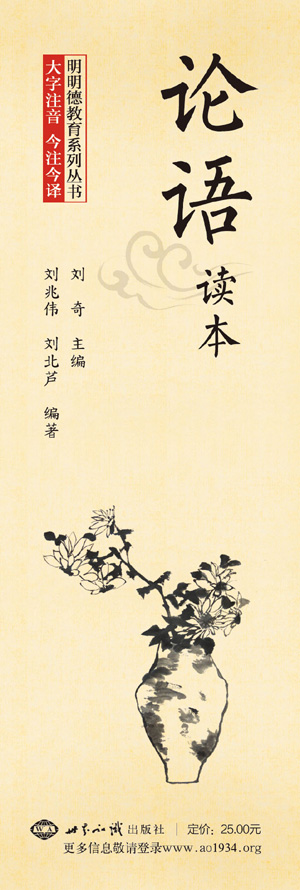 论语
读本
明明德教育系列丛书
大字注音 今注今译
刘 奇 主编
刘兆伟 刘北芦 编著
WA 世界知识出版社 | 定价：25.00元
更多信息敬请登录www.ao1934.org